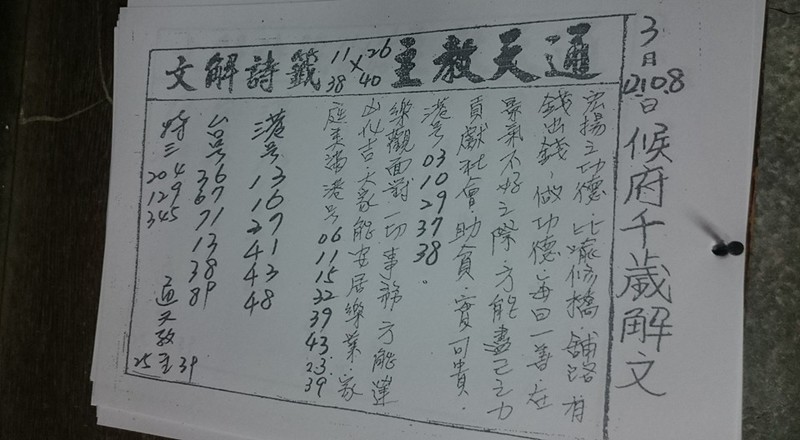 3月12.10.8日 候府千歲解文
通天教主 籤詩解文
11 26
X
38 40
宏揚之功德.比喻修橋.舖路有
錢出錢.做功德.每日一善在
景氣不好之際.方能盡己之力
貢獻社會.助貧.實可貴.
港号 03 10 29 37 38.
樂觀面對一切事務.方能運
凶化吉大家能安居樂業.家
庭美滿港号 06 11 15 32 39 43.23.39
港号 13 16 27 41 43 48
台号 36 67 71 13 38 89
特三 204 129 345
通天教主 39
25